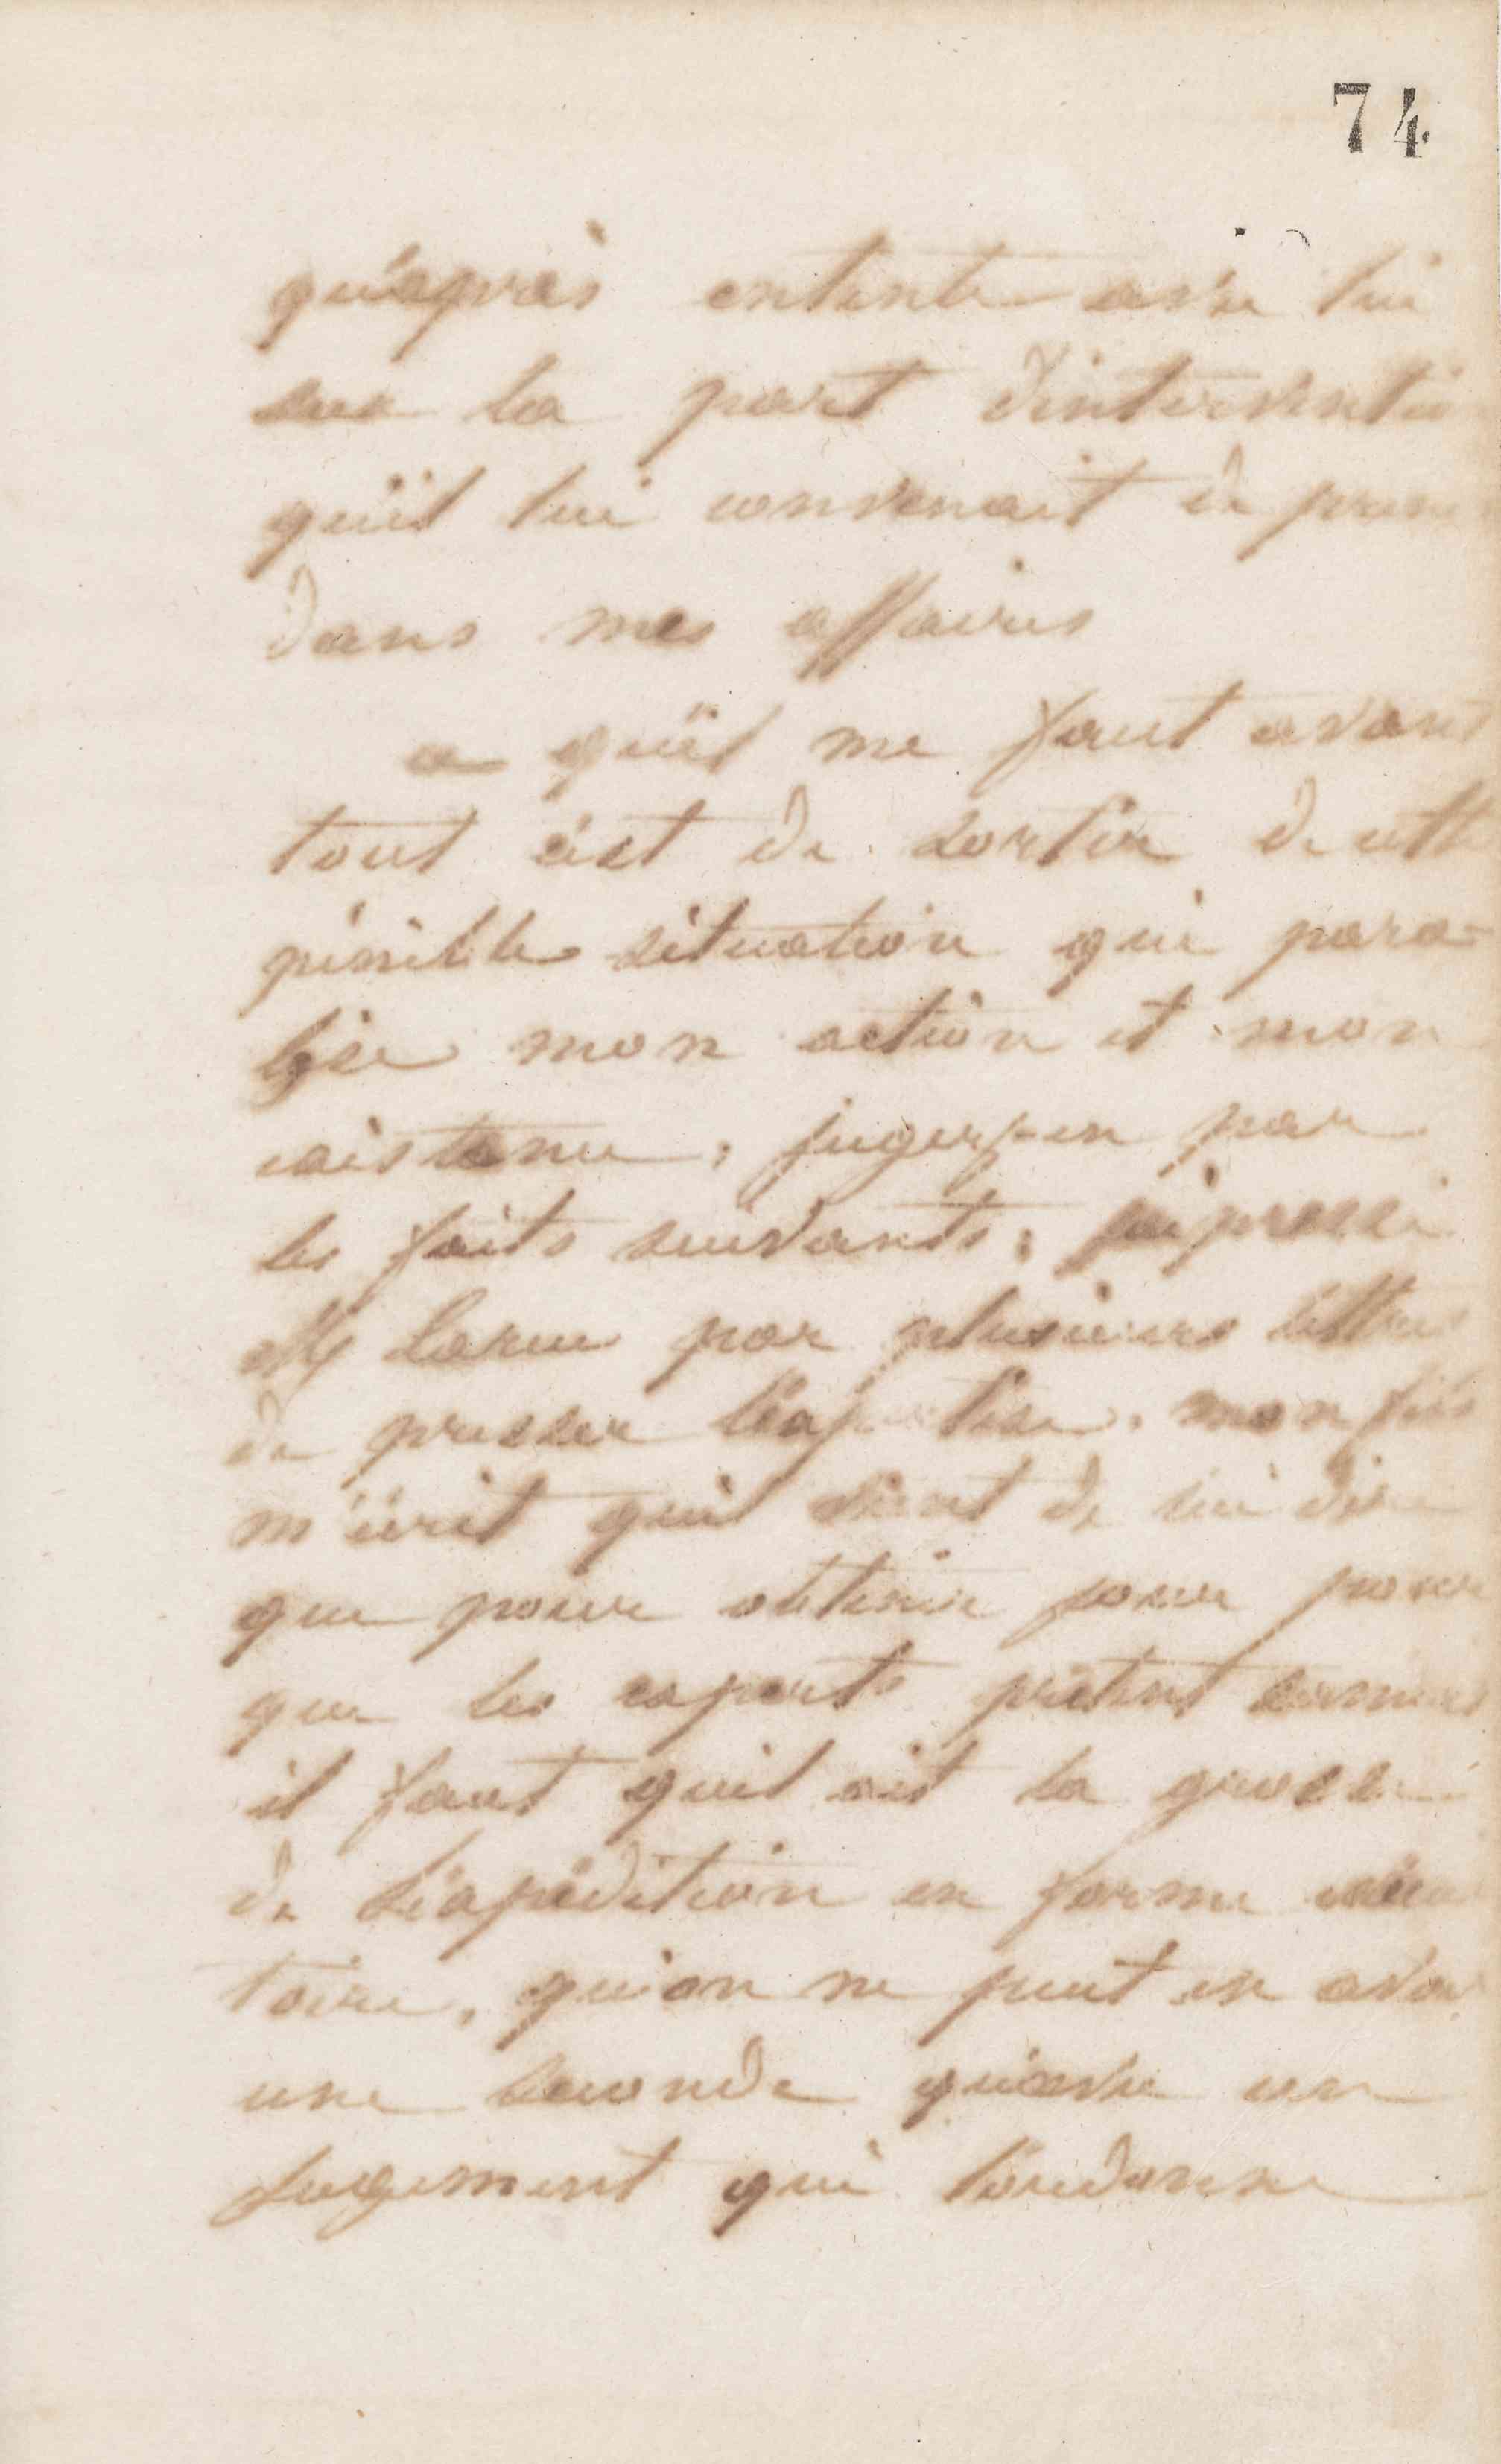 74
qu'après entente avec lui
sur la part d'interventio
qu'il lui convenait de pren
dans mes affaires
ce qu'il me faut avant
tout c'est de sortir de cette
pénible situation qui para-
lyse mon action et mon
existence, jugez-en par
les faits suivants; j'ai pressé
M. Larue par plusieurs lettres
de presser l'expertise. mon fils
m'écrit qu'il vient de lui dire
que pour obtenir jour pour
que les experts prêtent serment
il faut qu'il ait la grosse
de l'expédition en forme exécu
toire, qu'on ne peut en avoir
une seconde qu'avec un
jugement qui l'ordonne